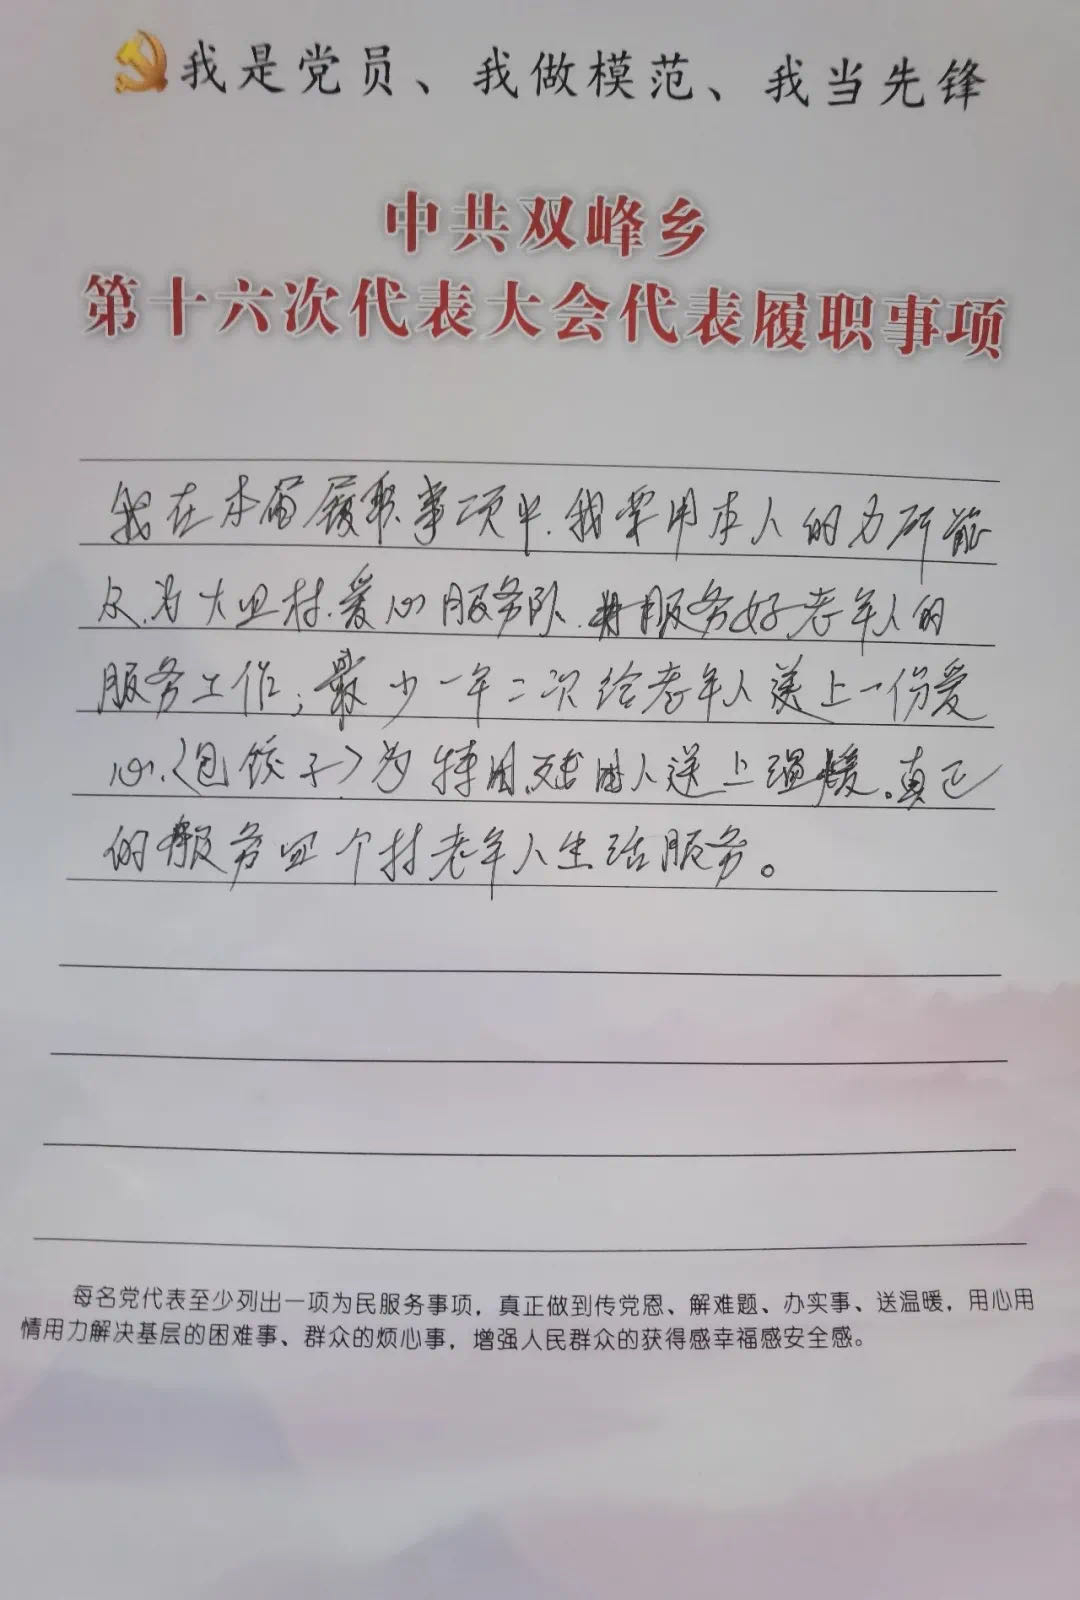 我是党员、我做模范、我当先锋
中共双峰乡
第十六次代表大会代表履职事项
我在本届履职事项中.我要用本人的力所能
及.为大田村.爱心服务队.服务好老年人的
服务工作；最少一年二次给老年人送上一份爱
心.〈包饺子〉为特困人送上温暖。真正
的服务四个村老年人生活服务。
每名党代表至少列出一项为民服务事项，真正做到传党恩、解难题、办实事、送温暖，用心用
情用力解决基层的困难事、群众的烦心事，增强人民群众的获得感幸福感安全感。